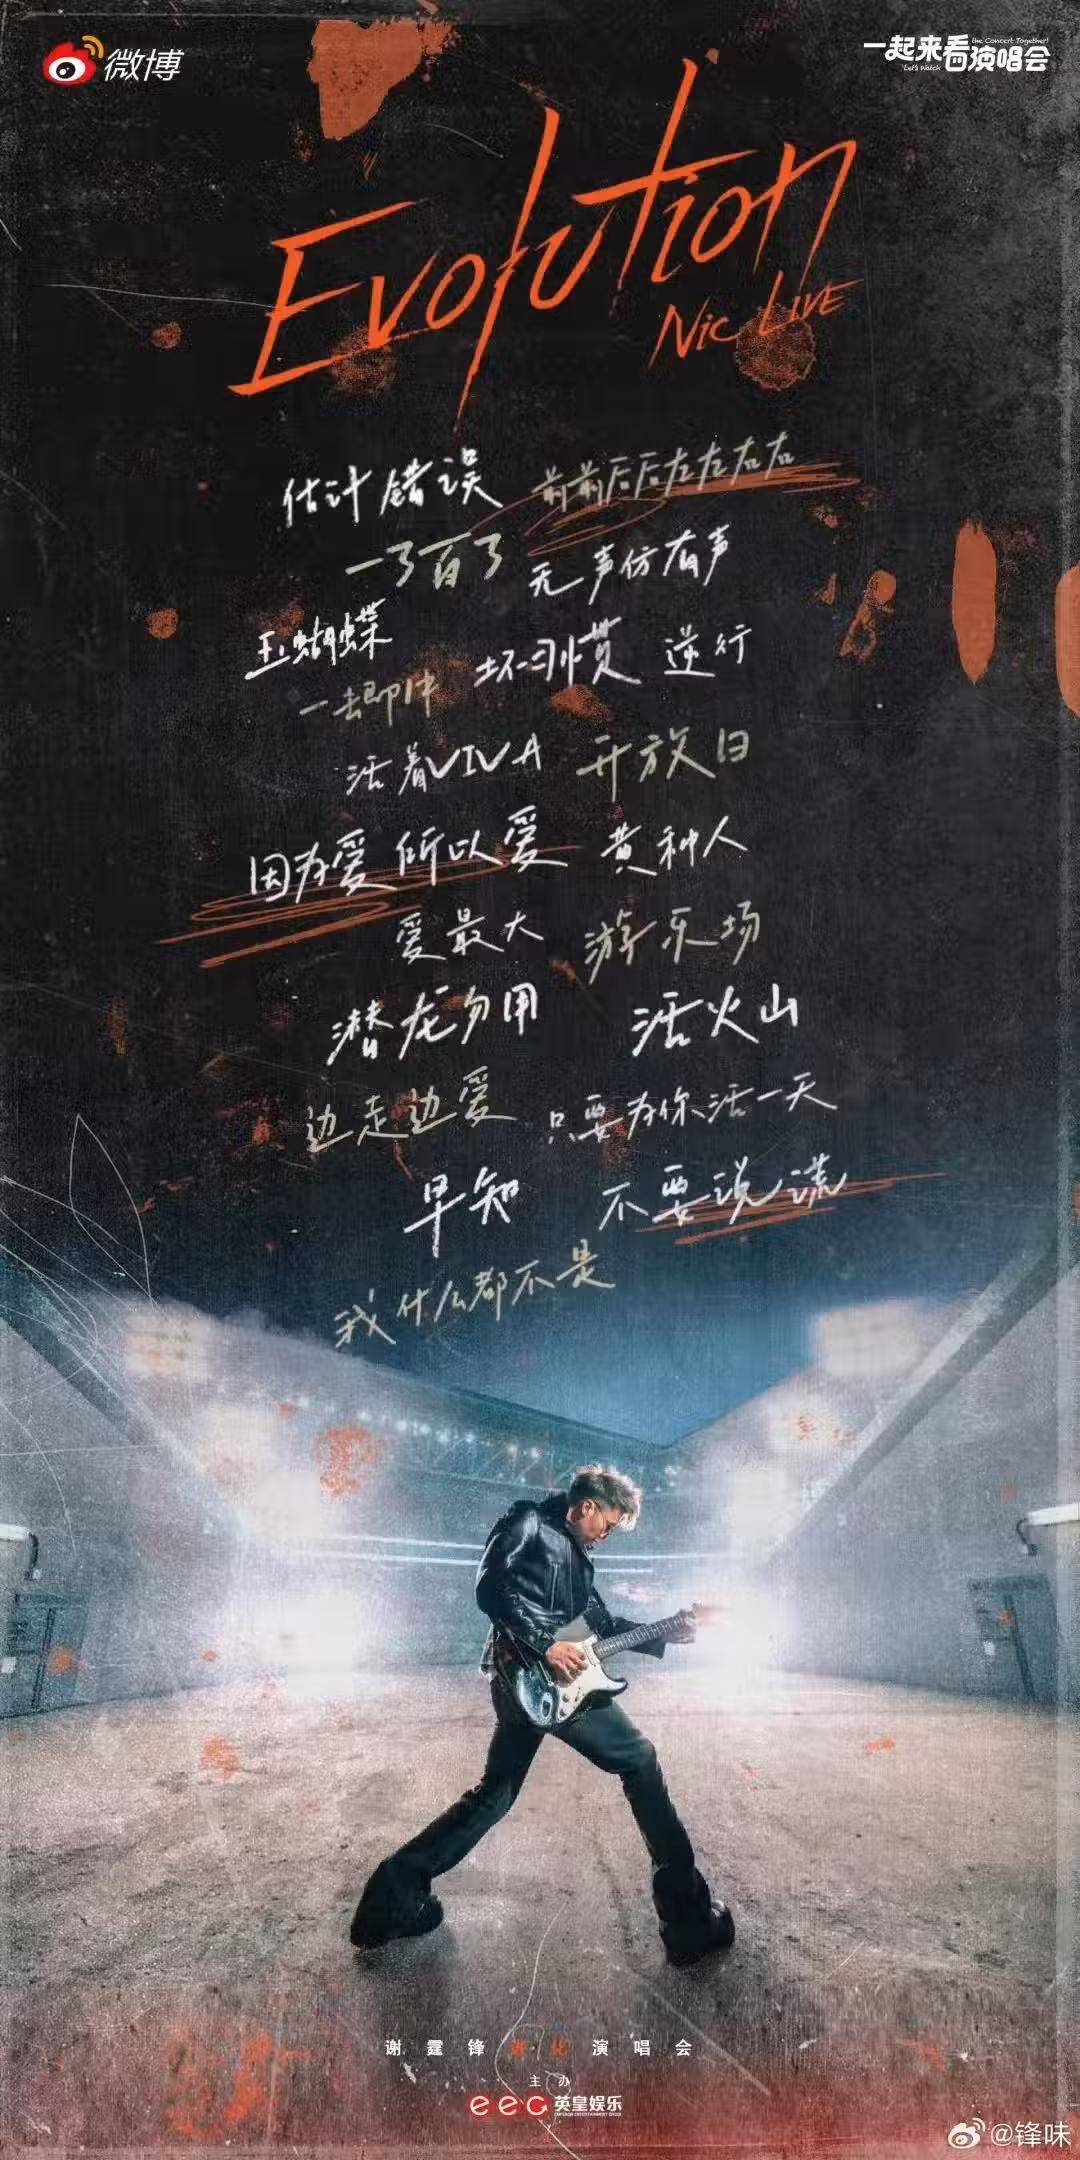 微博
一起来看演唱会
Let's Watch the Concert Together!
Evolution
Nic LIVE
估计错误 前前后后左左右右
一了百了 无声仿有声
玉蝴蝶
一击即中 坏习惯 逆行
活着VIVA 开放日
因为爱所以爱 黄种人
爱最大 游乐场
潜龙勿用 活火山
边走边爱 只要为你活一天
早知 不要说谎
我什么都不是
谢霆锋进化演唱会
主办
eeg 英皇娱乐
EMPEROR ENTERTAINMENT GROUP
@锋味